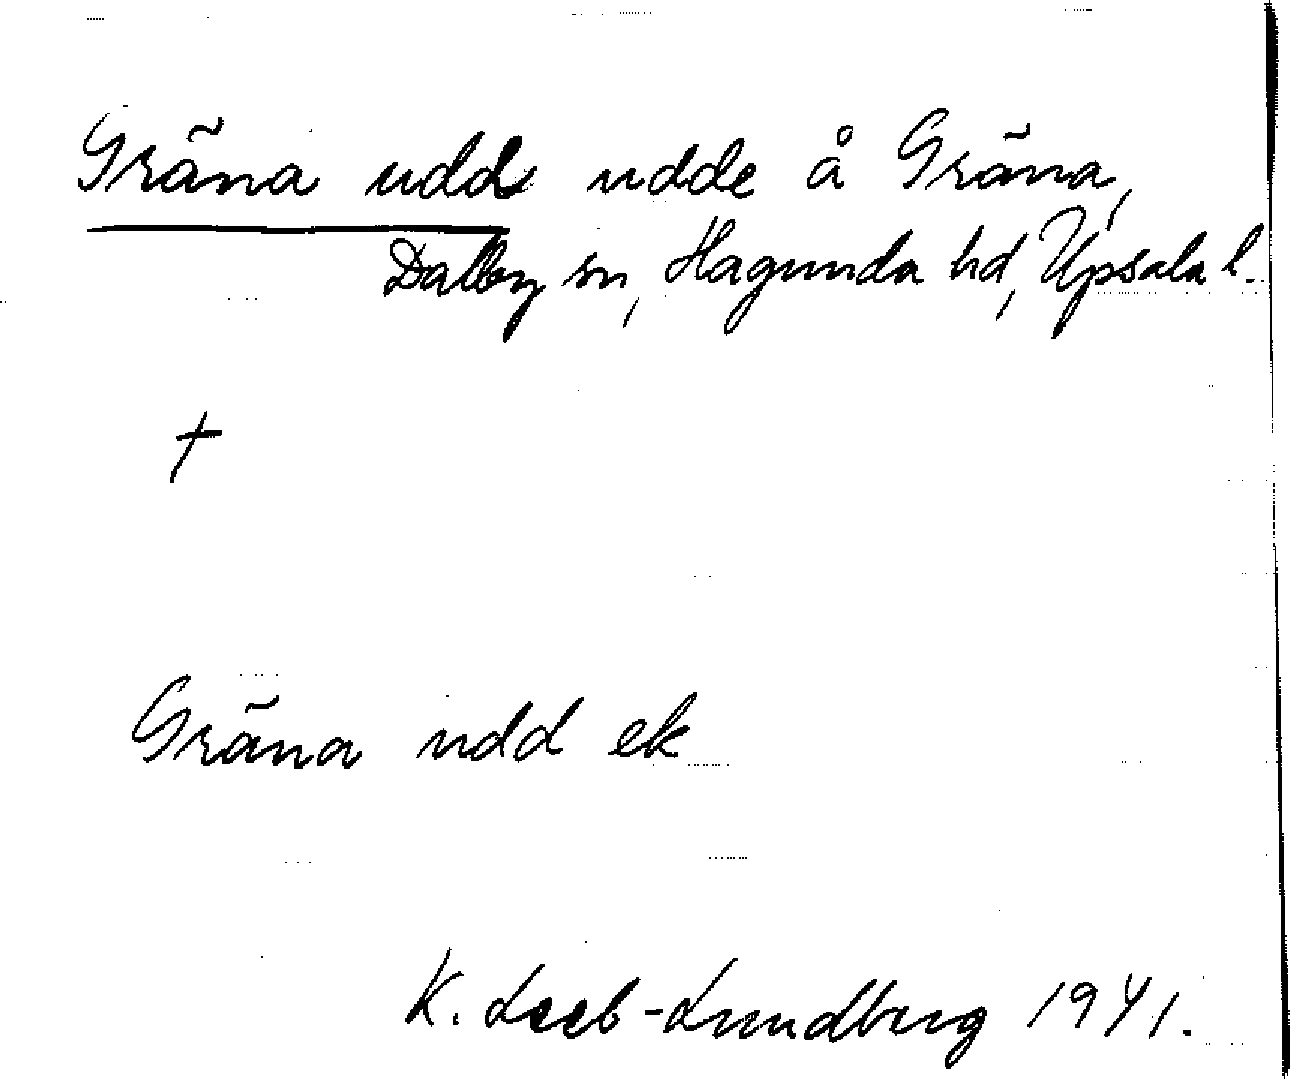 Gräna udd udde å Gräna,
Dalby sn, Hagunda hd, Upsala l.
†
Gräna udd ek
K. Leeb-Lundberg 1941.